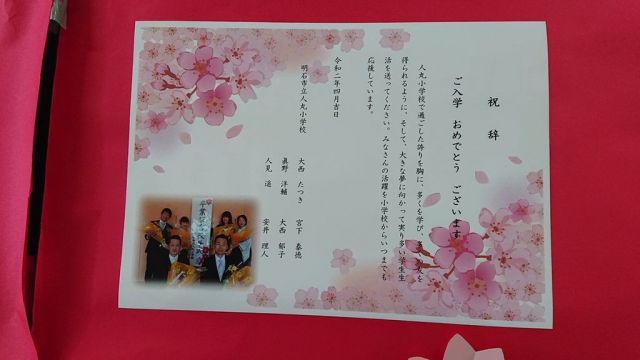 祝　辞
ご入学　おめでとう　ございます
人丸小学校で過ごした誇りを胸に、多くを学び、多
得られるように、そして、大きな夢に向かって実り多い学生生
活を送ってください。みなさんの活躍を小学校からいつまでも
応援しています。
令和二年四月吉日
明石市立人丸小学校
大西　たつき　宮下　泰徳
眞野　洋輔　大西　郁子
人見　遥　安井　理人
卒業